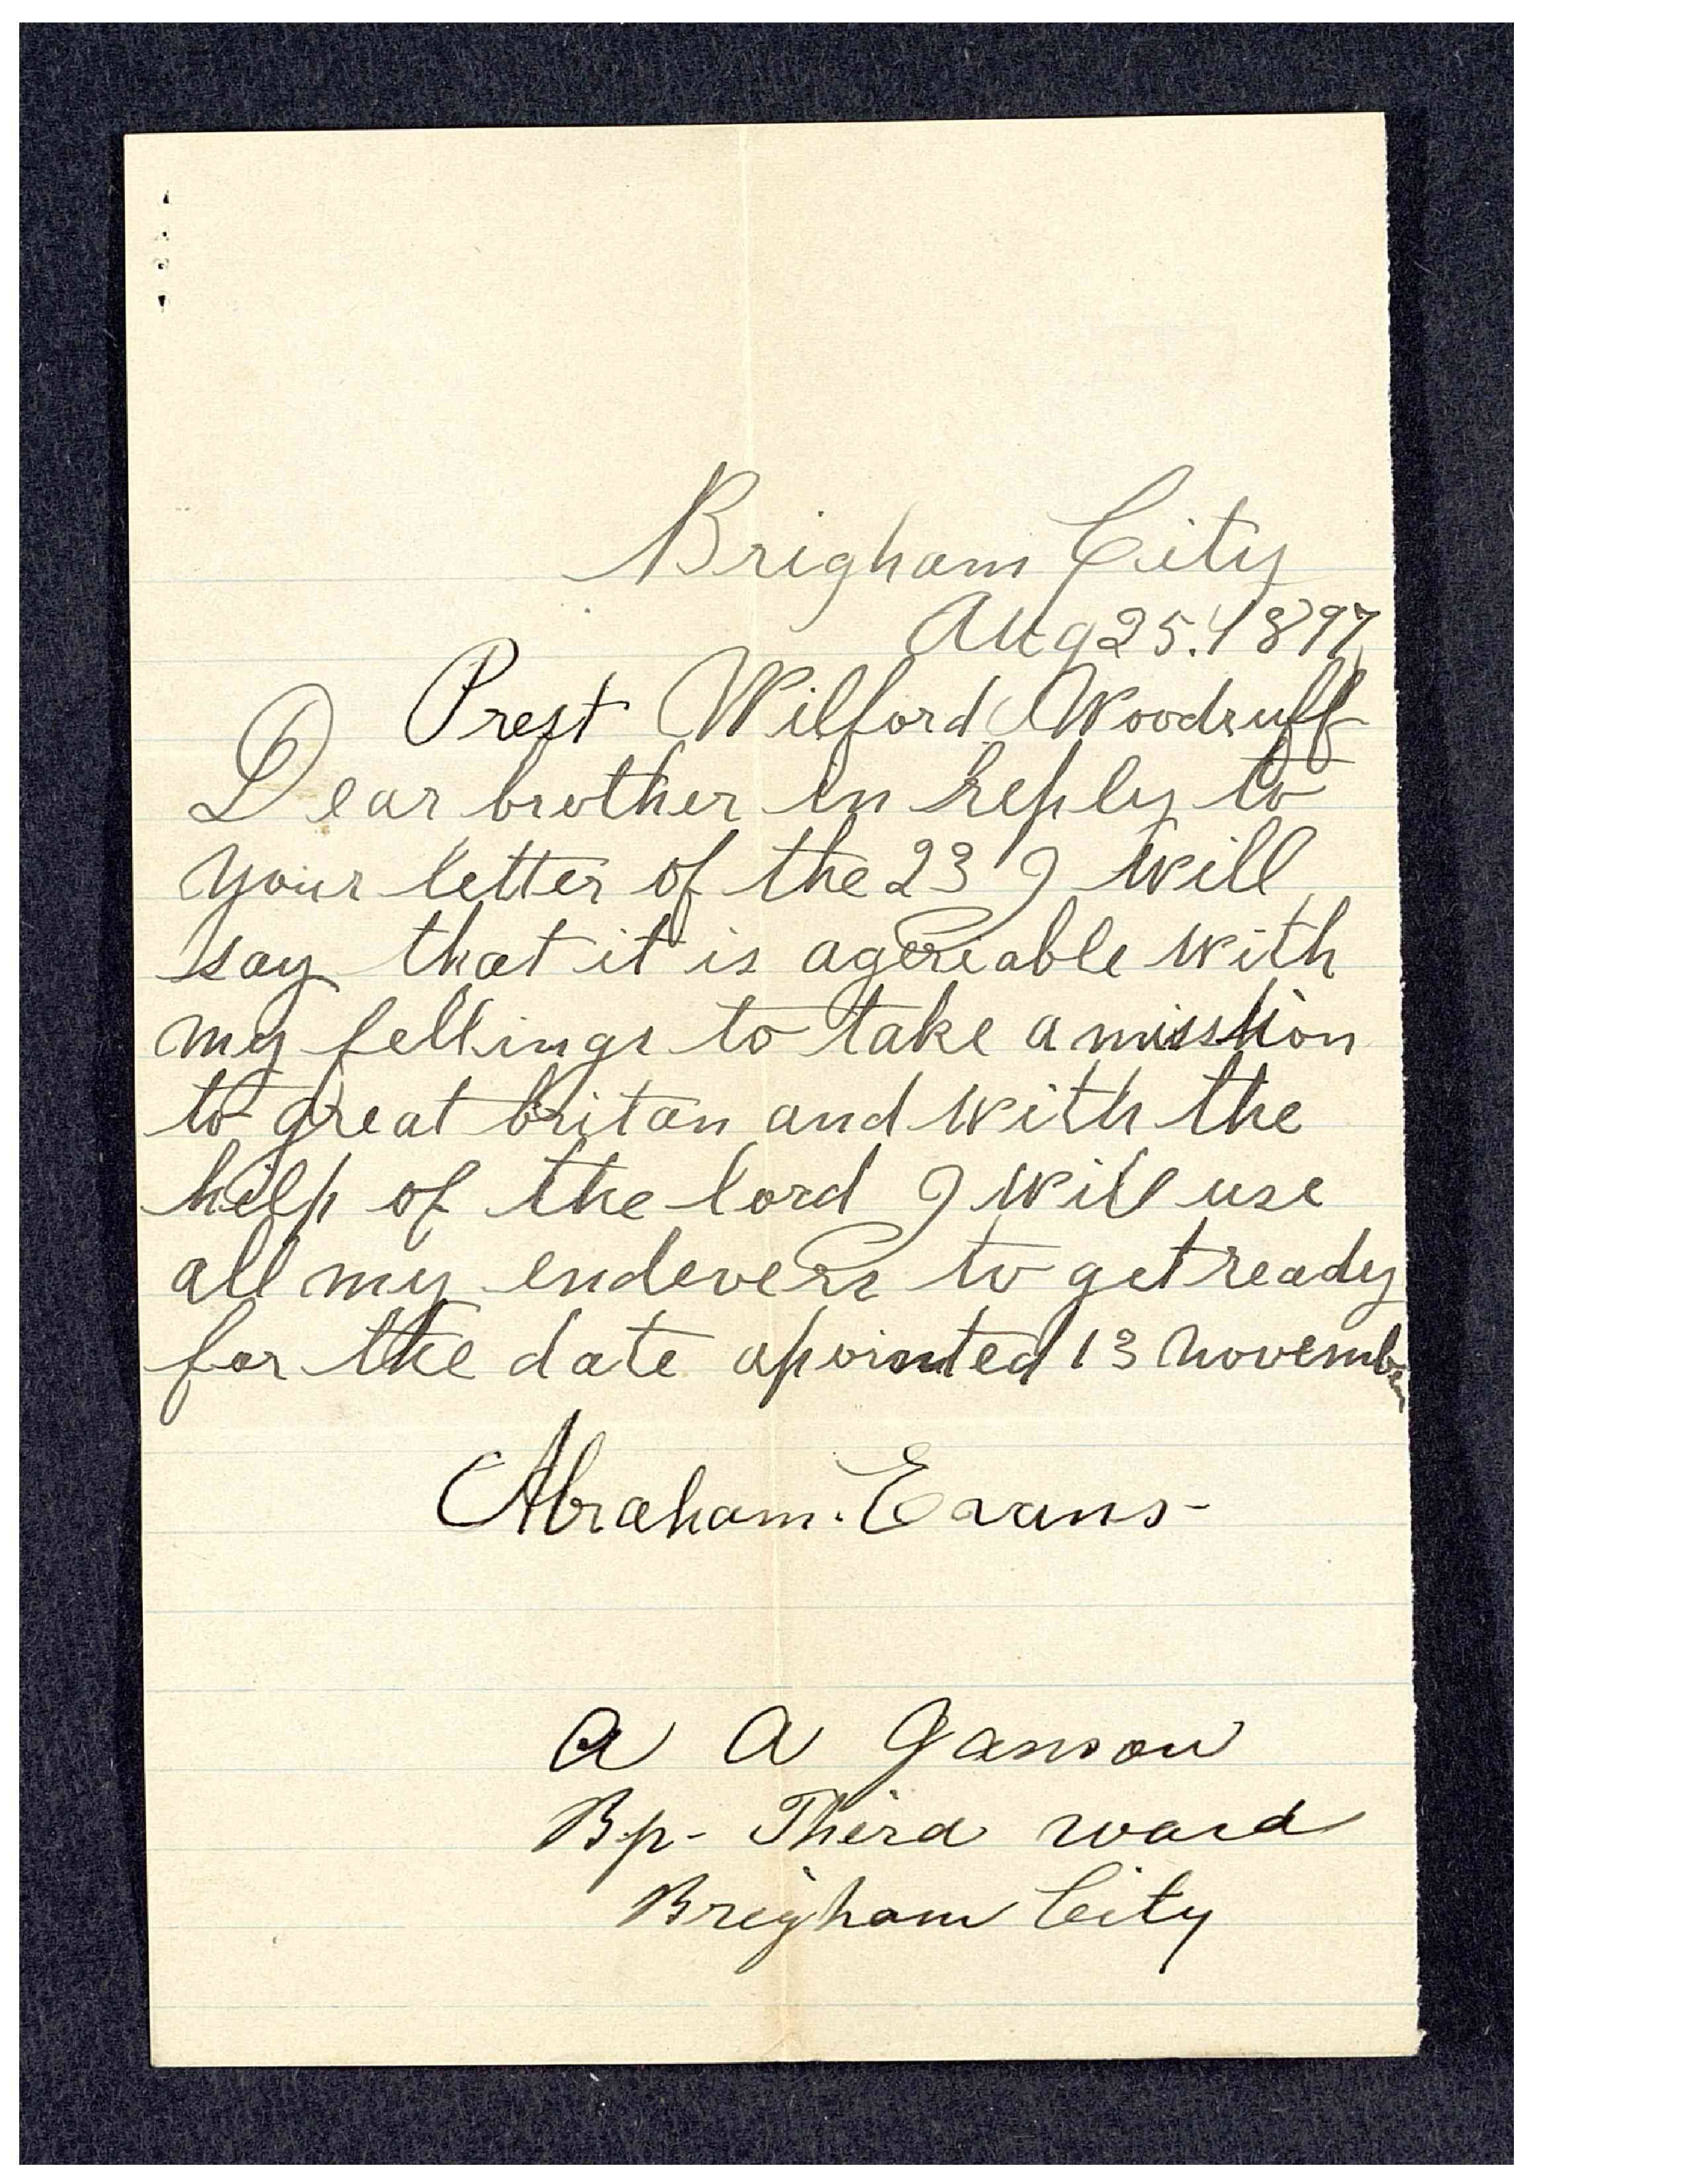 Brigham City
Aug 25. 1897
Prest Wilford Woodruff
Dear brother in reply to
your letter of the 23 I will
say that it is agreeable with
my fellings to take a misshion
to great britan and with the
help of the lord I will use
all my endevers to get ready
for the date apointed 13 november
Abraham. Evans-
A A Janson
Bp- Third ward
Brigham City